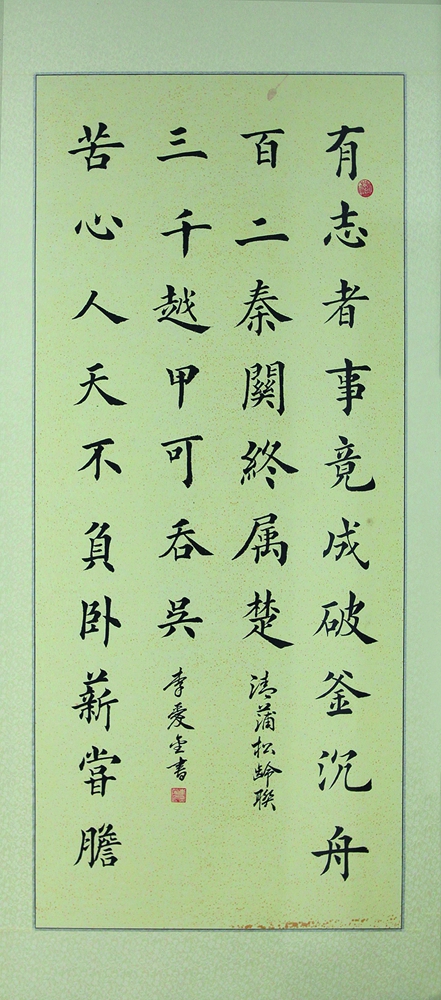 有志者事竟成破釜沉舟
百二秦關終属楚
清蒲松齡聯
苦心人天不負卧薪嘗膽
三千越甲可吞吳
李愛金書